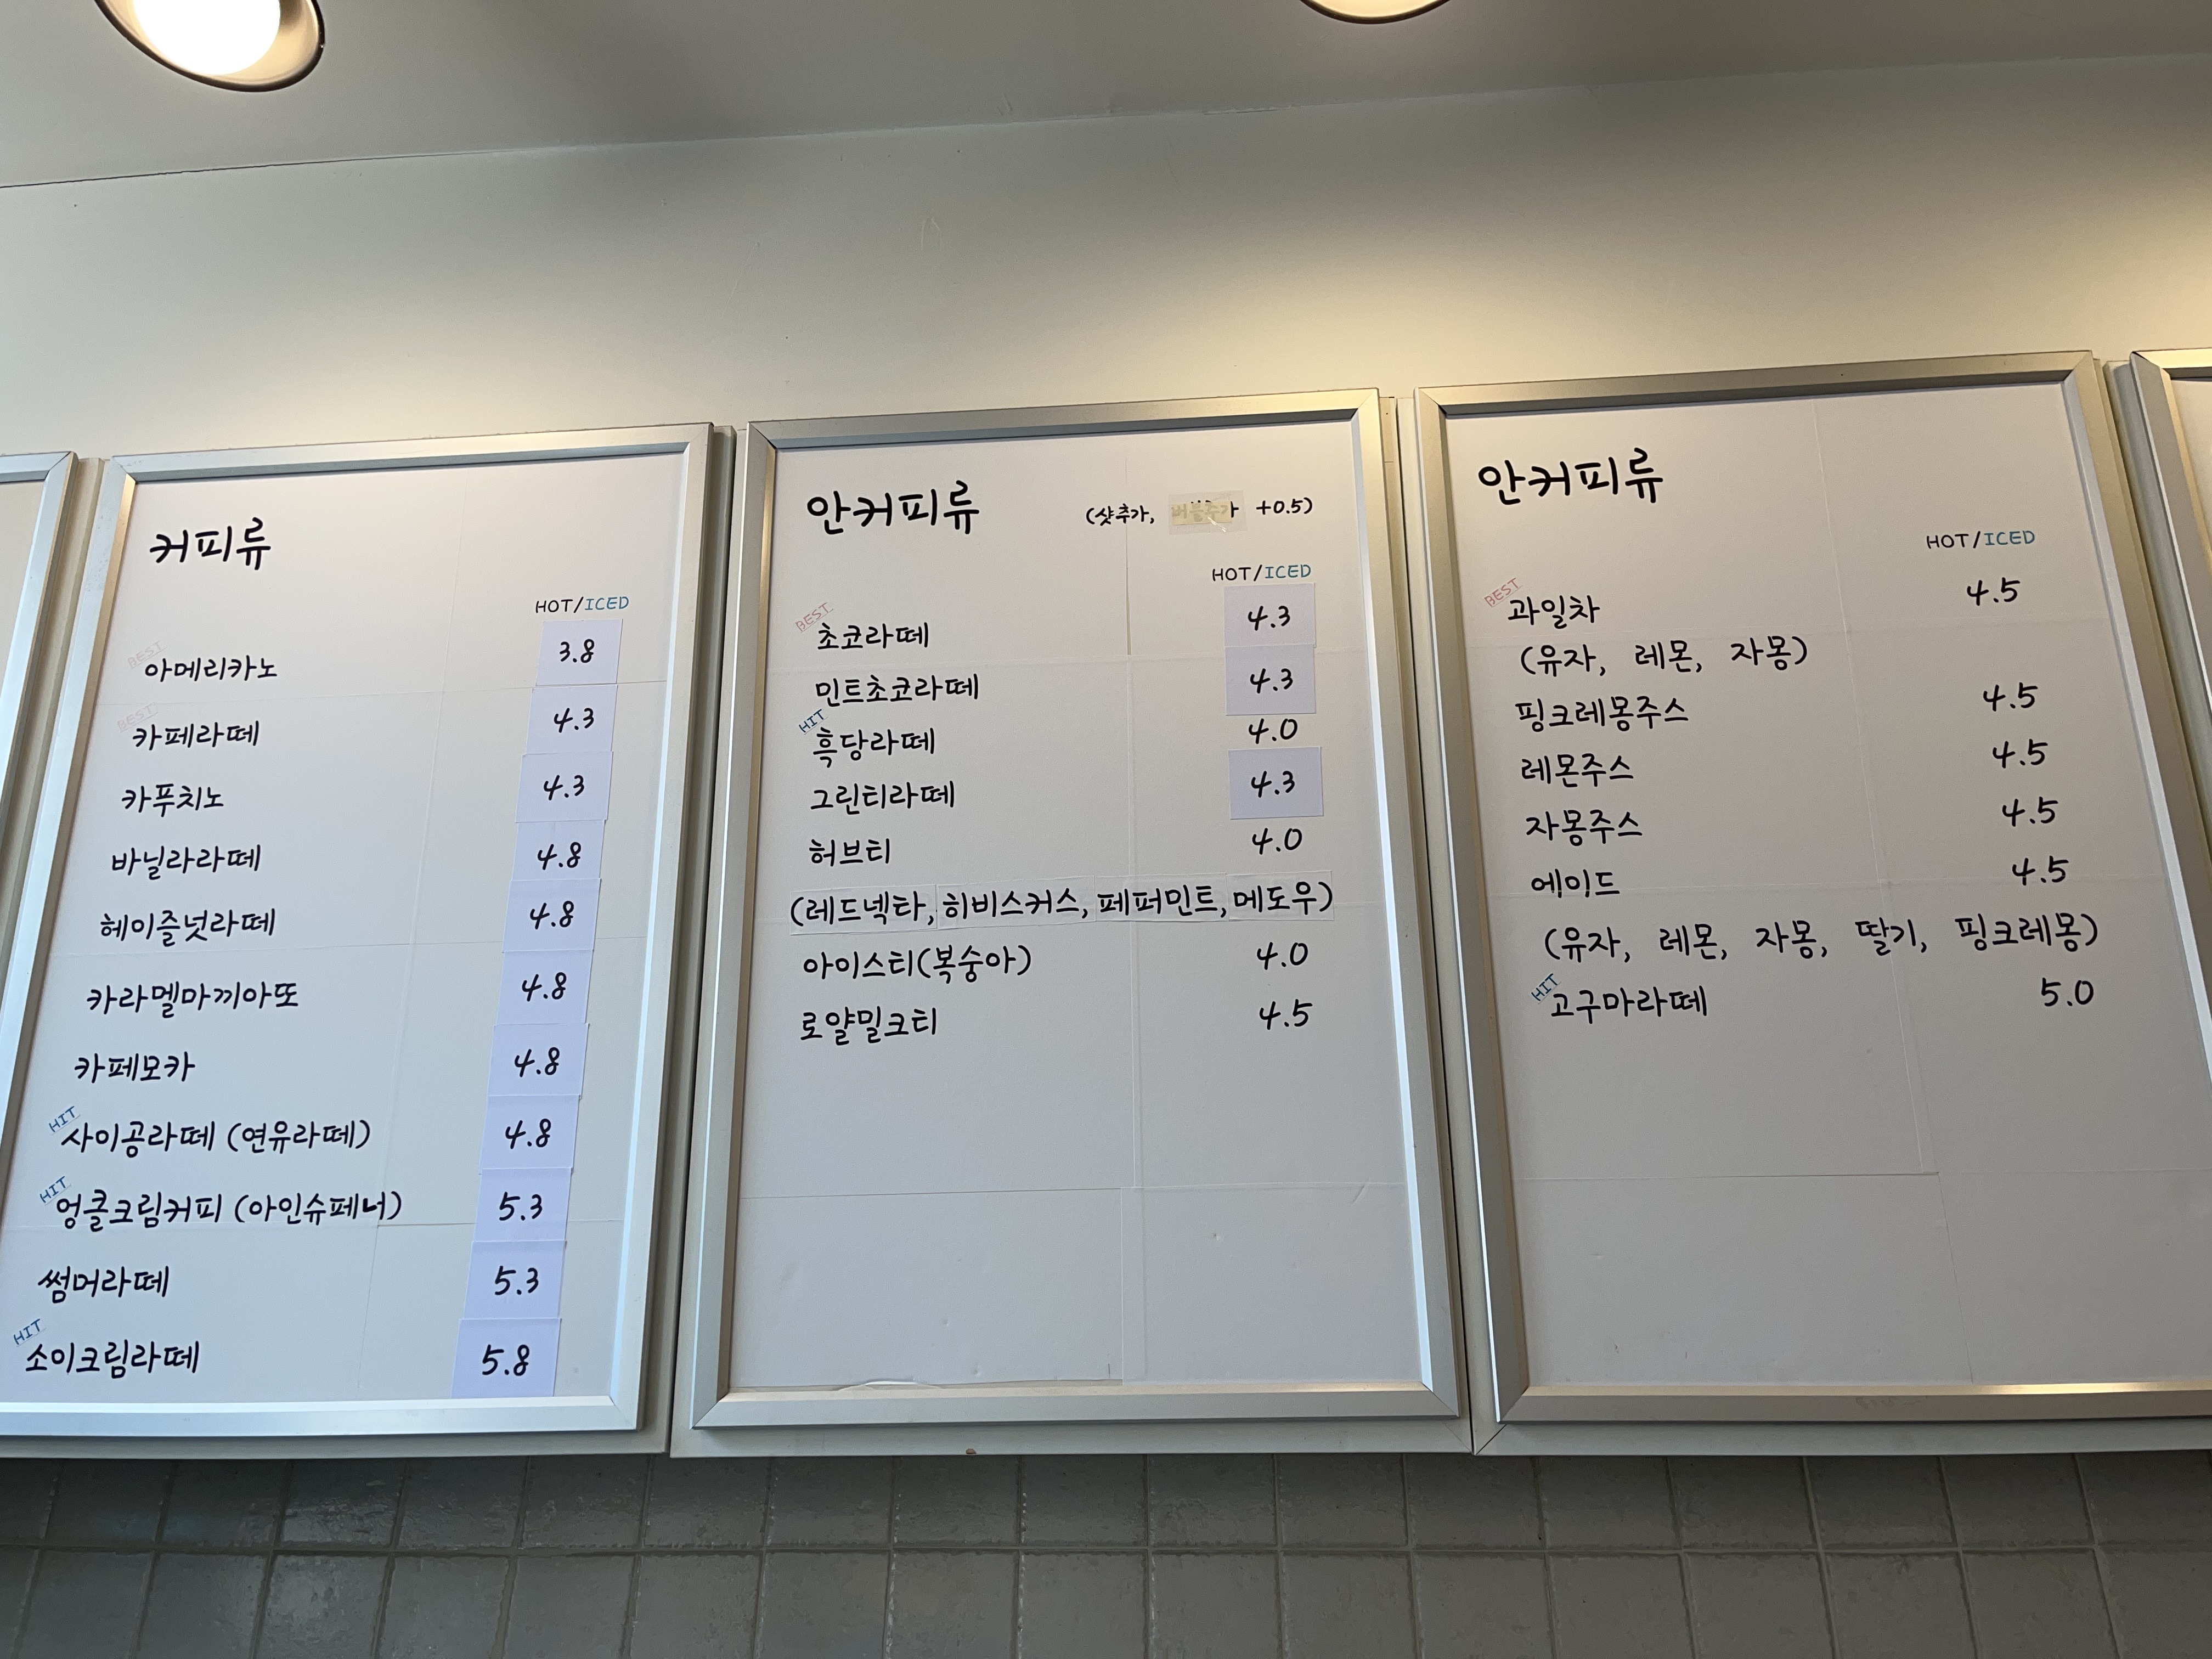 커피류
HOT/ICED
BEST
아메리카노 3.8
BEST
카페라떼 4.3
카푸치노 4.3
바닐라라떼 4.8
헤이즐넛라떼 4.8
카라멜마끼아또 4.8
카페모카 4.8
HIT
사이공라떼 (연유라떼) 4.8
HIT
엉클크림커피 (아인슈페너) 5.3
썸머라떼 5.3
HIT
소이크림라떼 5.8
안커피류 (샷추가, 버블추가 +0.5)
HOT/ICED
BEST
초코라떼 4.3
민트초코라떼 4.3
HIT
흑당라떼 4.0
그린티라떼 4.3
허브티 4.0
(레드넥타, 히비스커스, 페퍼민트, 메도우)
아이스티(복숭아) 4.0
로얄밀크티 4.5
안커피류
HOT/ICED
BEST
과일차 4.5
(유자, 레몬, 자몽)
핑크레몽주스 4.5
레몬주스 4.5
자몽주스 4.5
에이드 4.5
(유자, 레몬, 자몽, 딸기, 핑크레몽)
HIT
고구마라떼 5.0